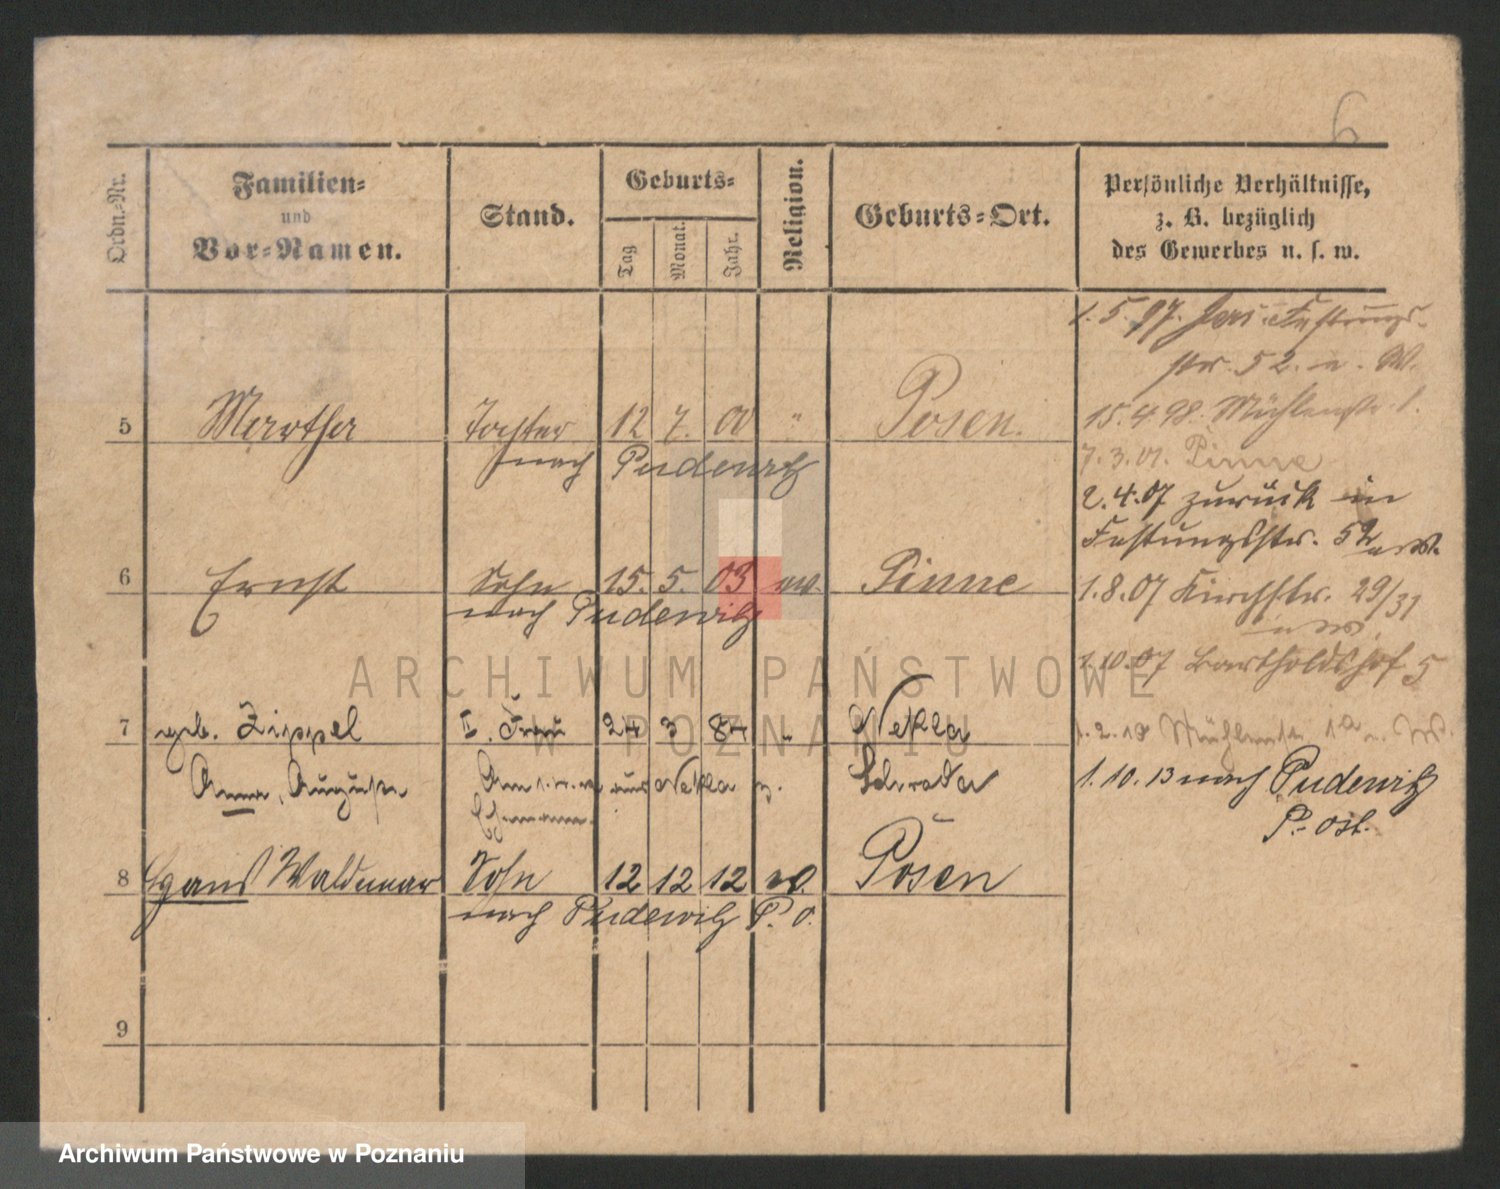 6
Ordn.-Nr.
Familien-
und
Vor-Namen.
Stand.
Geburts-
Tag
Monat.
Jahr.
Religion.
Geburts-Ort.
Persönliche Verhältnisse,
z. B. bezüglich
des Gewerbes u. s. w.
1. 5. 97. Festungs-
str. 52. W.
5 Martha Tochter 12 7. 00 " Posen.
nach Pudewitz
15. 4 98. Mühlenstr. 1.
7. 3. 01. Pinne
2. 4. 07 zurück in
Festungsstr. 52
6 Ernst Sohn 15. 5. 03 ev. Pinne
nach Pudewitz
1. 8. 07 Kirchstr. 29/31
1. 10. 07 Bartholdshof 5
7 geb. Zippel II. Frau 24 3 84 " Nekla
Anna, Auguste aus Nekla z. Schroda
Ehemann.
Mühlenstr. 1a
1. 10. 13 nach Pudewitz
P. Ost.
8 Waldemar Sohn 12 12 12 ev. Posen
nach Pudewitz P. O.
9
ARCHIWUM PAŃSTWOWE
W POZNANIU
Archiwum Państwowe w Poznaniu